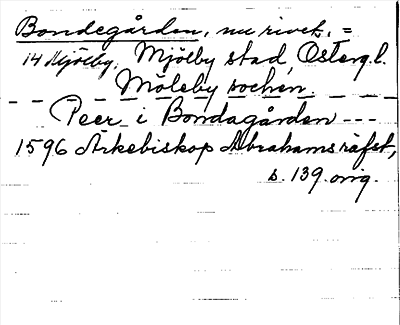 Bondegården, nu rivet, =
14 Mjölby, Mjölby stad, Österg. l.
Möleby sochen.
Peer i Bondagården ---
1596 Ärkebiskop Abrahams räfst,
s. 139. orig.